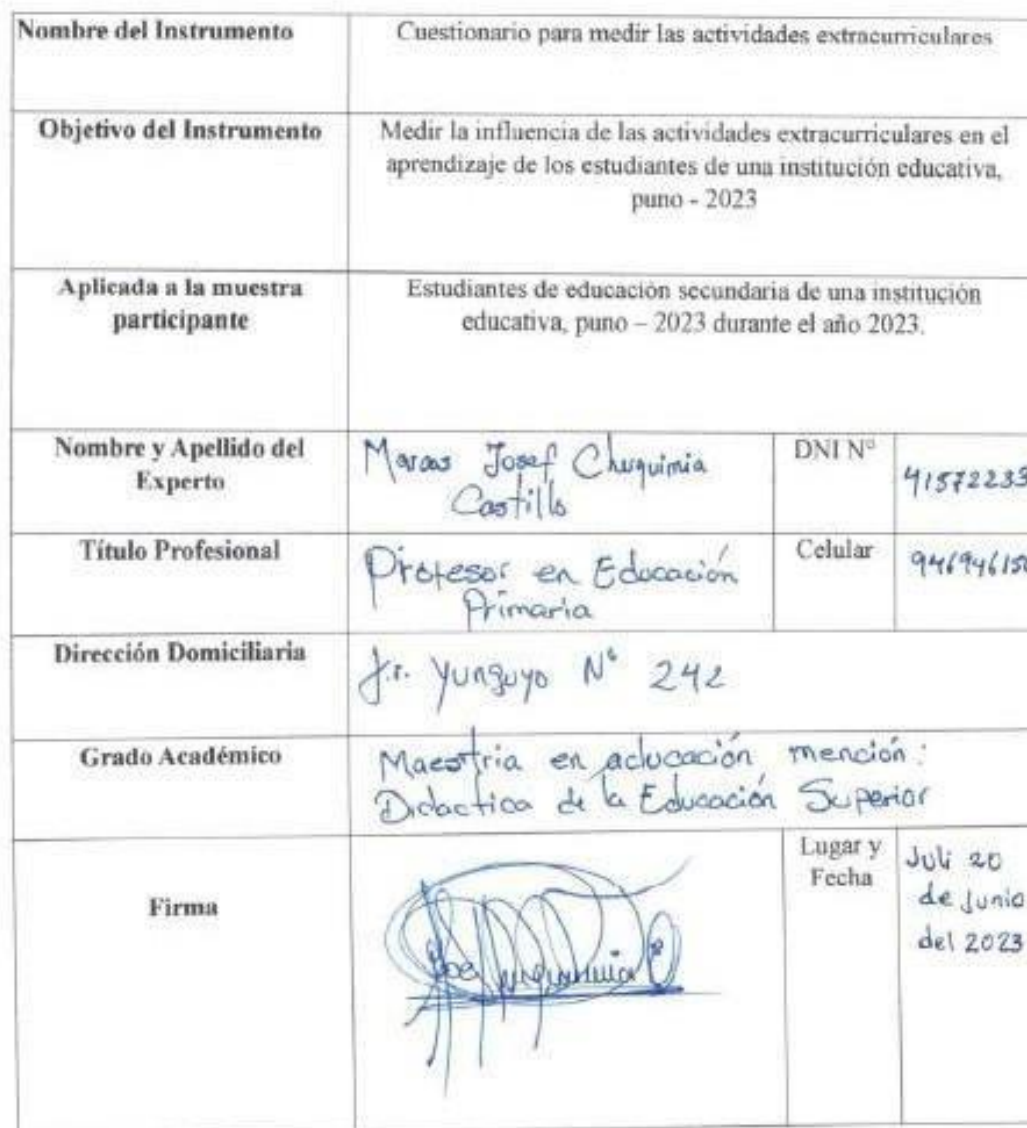 Nombre del Instrumento
Cuestionario para medir las actividades extracurriculares
Objetivo del Instrumento
Medir la influencia de las actividades extracurriculares en el
aprendizaje de los estudiantes de una institución educativa,
puno - 2023
Aplicada a la muestra
participante
Estudiantes de educación secundaria de una institución
educativa, puno – 2023 durante el año 2023.
Nombre y Apellido del
Experto
Josef Chuquimia
Castillo
DNI N°
41572233
Título Profesional
Profesor en Educación
Primaria
Celular
Dirección Domiciliaria
Jr. Yunguyo N° 242
Grado Académico
Maestria en aducación mención:
Didactica de la Educación Superior
Firma
Lugar y
Fecha
Juli 20
de Junio
del 2023